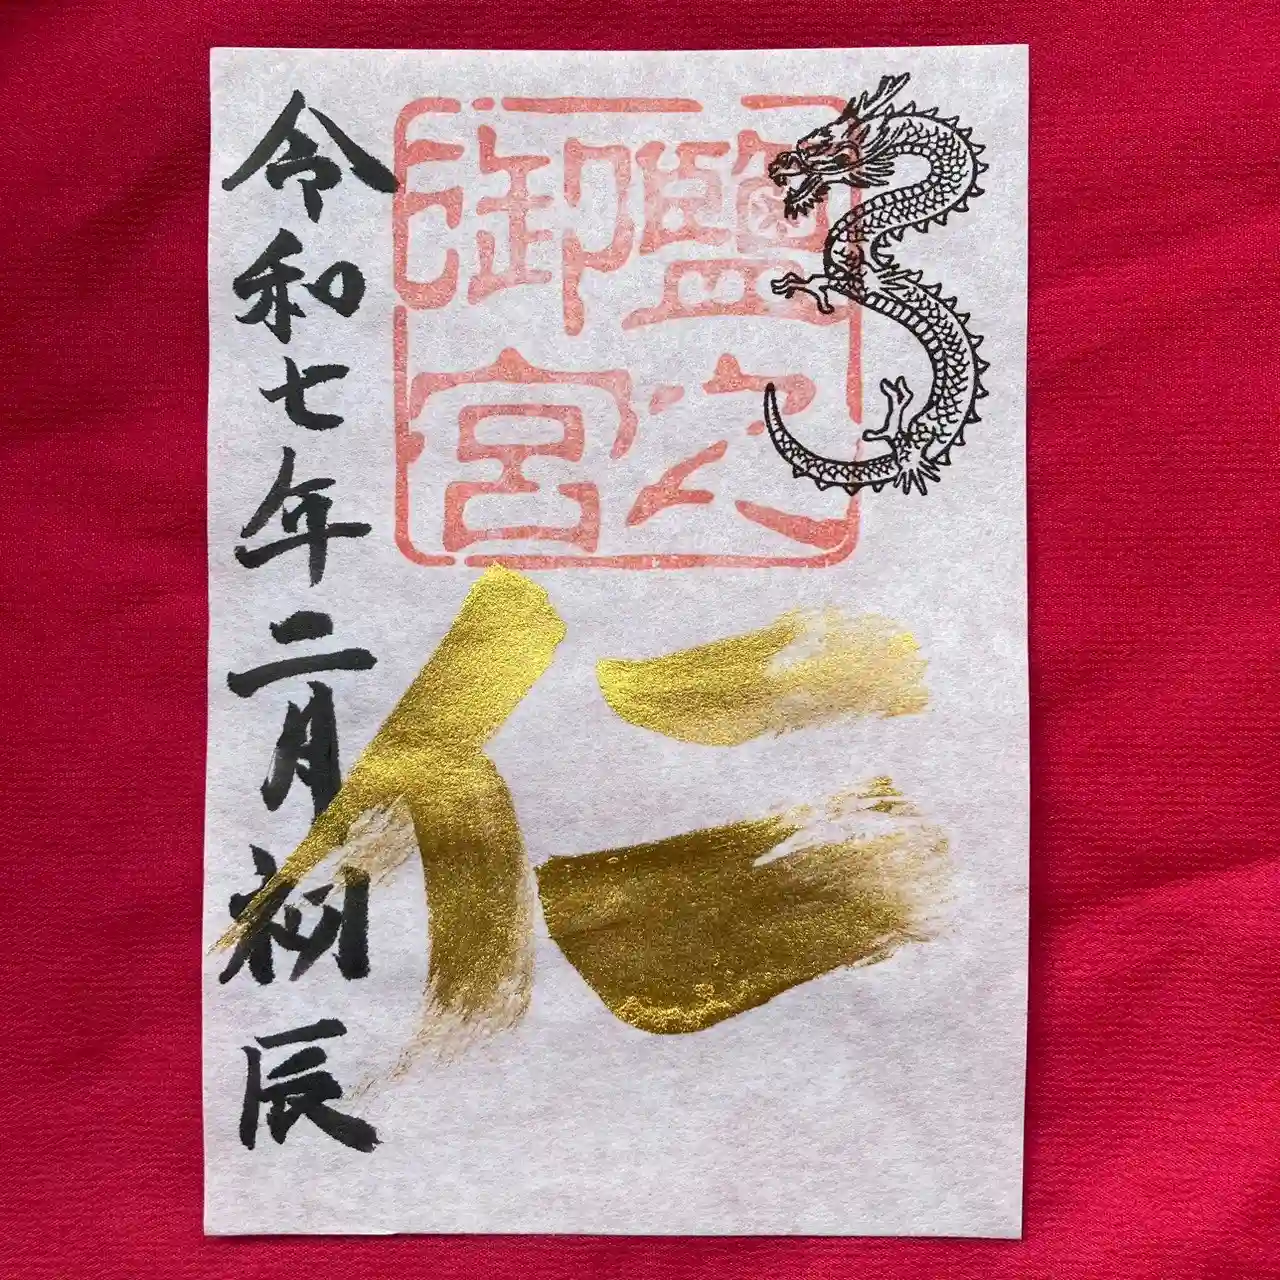 鹽之
御宮
仁
令和七年二月初辰